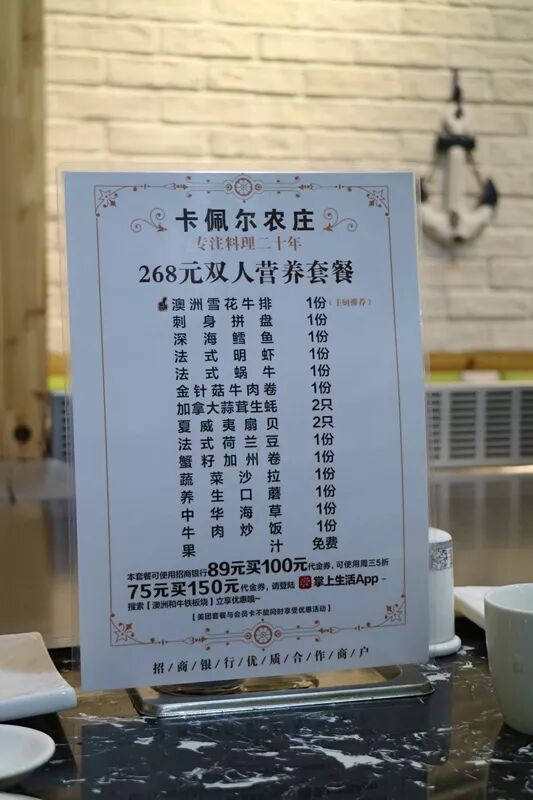 卡佩尔农庄
专注料理二十年
268元双人营养套餐
澳洲雪花牛排 1份（主厨推荐）
刺身拼盘 1份
深海鳕鱼 1份
法式明虾 1份
法式蜗牛 1份
金针菇牛肉卷 1份
加拿大蒜茸生蚝 2只
夏威夷扇贝 2只
法式荷兰豆 1份
蟹籽加州卷 1份
蔬菜沙拉 1份
养生口蘑 1份
中华海草 1份
牛肉炒饭 1份
果汁 免费
本套餐可使用招商银行89元买100元代金券，可使用周三5折
75元买150元代金券，请登陆 掌上生活App－
搜索【澳洲和牛铁板烧】立享优惠哦~
【美团套餐与会员卡不能同时享受优惠活动】
招/商/银/行/优/质/合/作/商/户